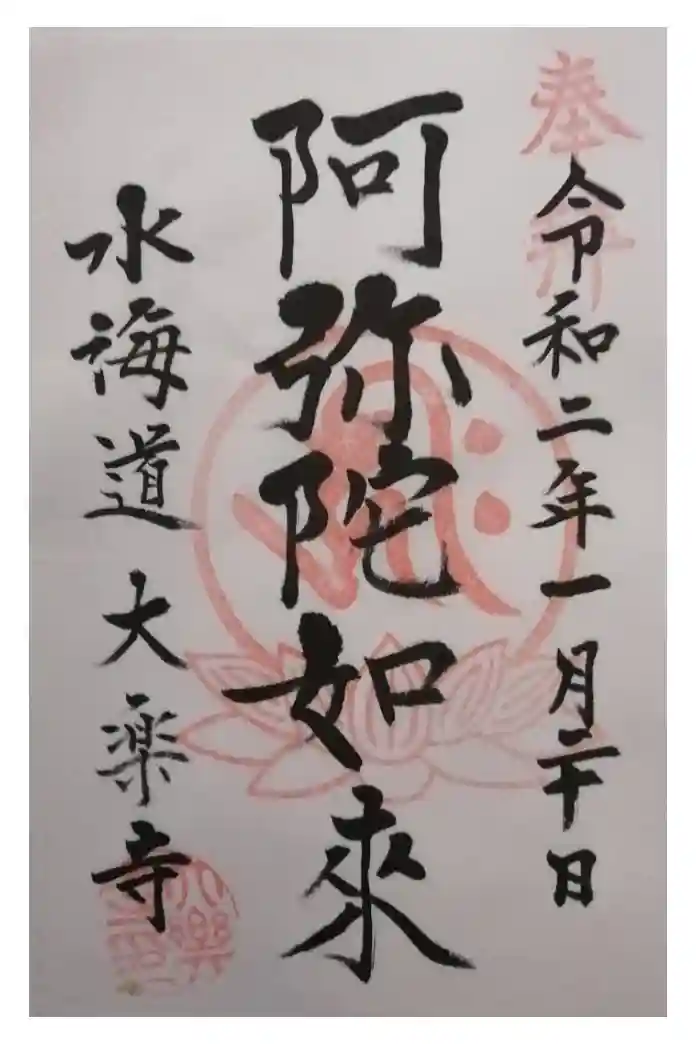 奉拝
令和二年一月二十日
阿弥陀如來
水海道大楽寺